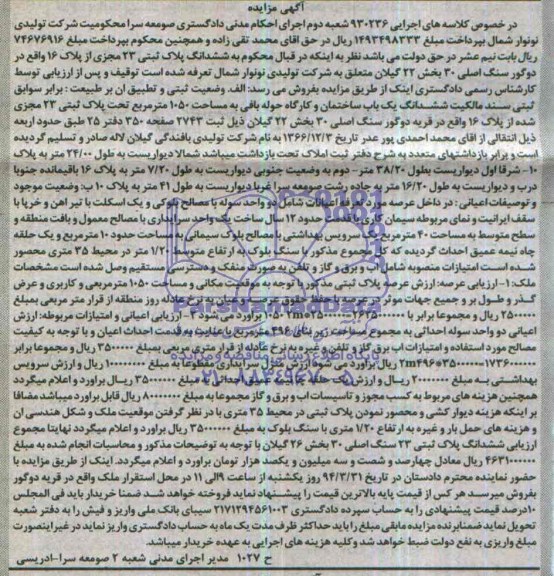 آگهی مزایده
در خصوص کلاسه های اجرایی ۹۳۰۲۳۶ شعبه دوم اجرای احکام مدنی دادگستری صومعه سرا محکومیت شرکت تولیدی
نونوار شمال بپرداخت مبلغ ۱۴۹۳۴۹۸۳۳۳ ریال در حق اقای محمد تقی زاده و همچنین محکوم بپرداخت مبلغ ۷۴۶۷۶۹۱۶
ریال بابت نیم عشر در حق دولت می باشد نظر به اینکه در قبال محکوم به ششدانگ پلاک ثبتی ۲۳ مجزی از پلاک ۱۶ واقع در
دوگور سنگ اصلی ۳۰ بخش ۲۲ گیلان متعلق به شرکت تولیدی نونوار شمال تعرفه شده است توقیف و پس از ارزیابی توسط
کارشناس رسمی دادگستری اینک از طریق مزایده بفروش می رسد: الف. وضعیت ثبتی و تطبیق ان بر طبیعت : برابر سوابق
ثبتی سند مالکیت ششدانگ یک باب ساختمان و کارگاه حوله بافی به مساحت ۱۰۵۰ مترمربع تحت پلاک ثبتی ۲۳ مجزی
شده از پلاک ۱۶ واقع در قریه دوگور سنگ اصلی ۳۰ بخش ۲۲ گیلان ذیل ثبت ۲۷۴۳ صفحه ۳۵۰ دفتر ۲۵ طبق حدود اربعه
ذیل انتقالی از اقای محمد احمدی پور عدر تاریخ ۱۳۶۶/۱۲/۳ به نام شرکت تولیدی بافندگی گیلان لاله صادر و تسلیم گردیده
است و برابر بازداشتهای متعدد به شرح دفتر ثبت املاک تحت بازداشت میباشد شمالا دیواریست به طول ۲۴/۰۰ متر به پلاک
۱۰- شرقا اول دیواریست بطول ۳۸/۲۰ متر - دوم به وضعیت جنوبی دیواریست به طول ۷/۲۰ متر به پلاک ۱۶ باقیمانده جنوبا
درب و دیواریست به طول ۱۶/۲۰ متر به جاده رشت صومعه سرا غربا دیواریست به طول ۴۱ متر به پلاک ۱۰ ب: وضعیت موجود
و توصیفات اعیانی : در داخل عرصه مورد تعرفه اعیانات شامل دو واحد سوله با مصالح بلوکی و یک اسکلت با تیر اهن و خرپا با
سقف ایرانیت و نمای مربوطه سیمان کاری با قدمت حدود ۱۲ سال ساخت یک واحد سرایداری با مصالح معمول و بافت منطقه و
سطح متوسط به مساحت ۴۰ مترمربع یک سرویس بهداشتی با مصالح بلوک سیمانی به مساحت حدود ۱۰ مترمربع و یک حلقه
چاه نیمه عمیق احداث گردیده که کل مجموع مذکور با سنگ بلوک به ارتفاع متوسط ۱/۲۰ متر در محیط ۳۵ متری محصور
شده است امتیازات منصوبه شامل اب و برق و گاز و تلفن به صورت منفک و دسترسی مستقیم وصل شده است مشخصات
ملک: ۱- ارزیابی عرصه: ارزش عرصه پلاک ثبتی مذکور با توجه به موقعیت مکانی و مساحت ۱۰۵۰ مترمربعی و کاربری و عرض
گذر و طول بر و جمیع جهات موثر در عرصه با حفظ حقوق عرصه و اعیان به نرخ عادله روز منطقه از قرار متر مربعی بمبلغ
۲۵۰۰۰۰۰ ریال و مجموعا برابر با
اعیانی دو واحد سوله احداثی به مجموع مساحت زیر بنای ۴۹۶ مترمربع با عنایت به قدمت احداث اعیان و با توجه به کیفیت
مصالح مورد استفاده و امتیازات اب برق گاز و تلفن و غیره به نرخ عادله از قرار متری مربعی بمبلغ ۳۵۰۰۰۰۰ ریال و مجموعا برابر
2m۴۹۶*۳۵۰۰۰۰۰=۱۷۳۶۰۰۰۰۰۰ ریال براورد می شود ارزش منزل سرایداری مقطوعا به مبلغ ریال و ارزش سرویس
بهداشتی به مبلغ ریال و ارزش یک حلقه چاه نیمه عمیق احداثی به مبلغ ریال براورد و اعلام میگردد
همچنین هزینه های مربوط به کسب مجوز و تاسیسات اب و برق و گاز مجموعا به مبلغ ریال قابل براورد میباشد مضافا
بر اینکه هزینه دیوار کشی و محصور نمودن پلاک ثبتی در محیط ۳۵ متری با در نظر گرفتن موقعیت ملک و شکل هندسی ان
و هزینه های حمل بار و غیره به ارتفاع ۱/۲۰ متری با سنگ بلوک به مبلغ ریال براورد و اعلام میگردد نهایتا مجموع
ارزیابی ششدانگ پلاک ثبتی ۲۳ سنگ اصلی ۳۰ بخش ۲۶ گیلان با توجه به توضیحات مذکور و محاسبات انجام شده به مبلغ
۴۶۳۱۰۰۰۰۰۰ ریال معادل چهارصد و شصت و سه میلیون و یکصد هزار تومان براورد و اعلام میگردد. اینک از طریق مزایده با
حضور نماینده محترم دادستان در تاریخ ۹۴/۳/۳۱ روز یکشنبه از ساعت ۹ الی ۱۱ در محل استقرار ملک واقع در قریه دوگور
بفروش میرسد هر کس از قیمت پایه بالاترین قیمت را پیشنهاد نماید فروخته خواهد شد ضمنا خریدار باید فی المجلس
۱۰درصد قیمت پیشنهادی را به حساب سپرده دادگستری ۲۱۷۱۲۹۴۵۶۱۰۰۳ سیبای بانک ملی واریز و فیش را به دفتر شعبه
تحویل نماید ضمنا برنده مزایده مابقی مبلغ را باید حداکثر ظرف مدت یک ماه به حساب دادگستری واریز نماید در غیر اینصورت
مبلغ واریزی به نفع دولت ضبط خواهد شد و کلیه هزینه های اجرایی به عهده خریدار میباشد.
ح ۱۰۲۷ مدیر اجرای مدنی شعبه ۲ صومعه سرا-ادریسی